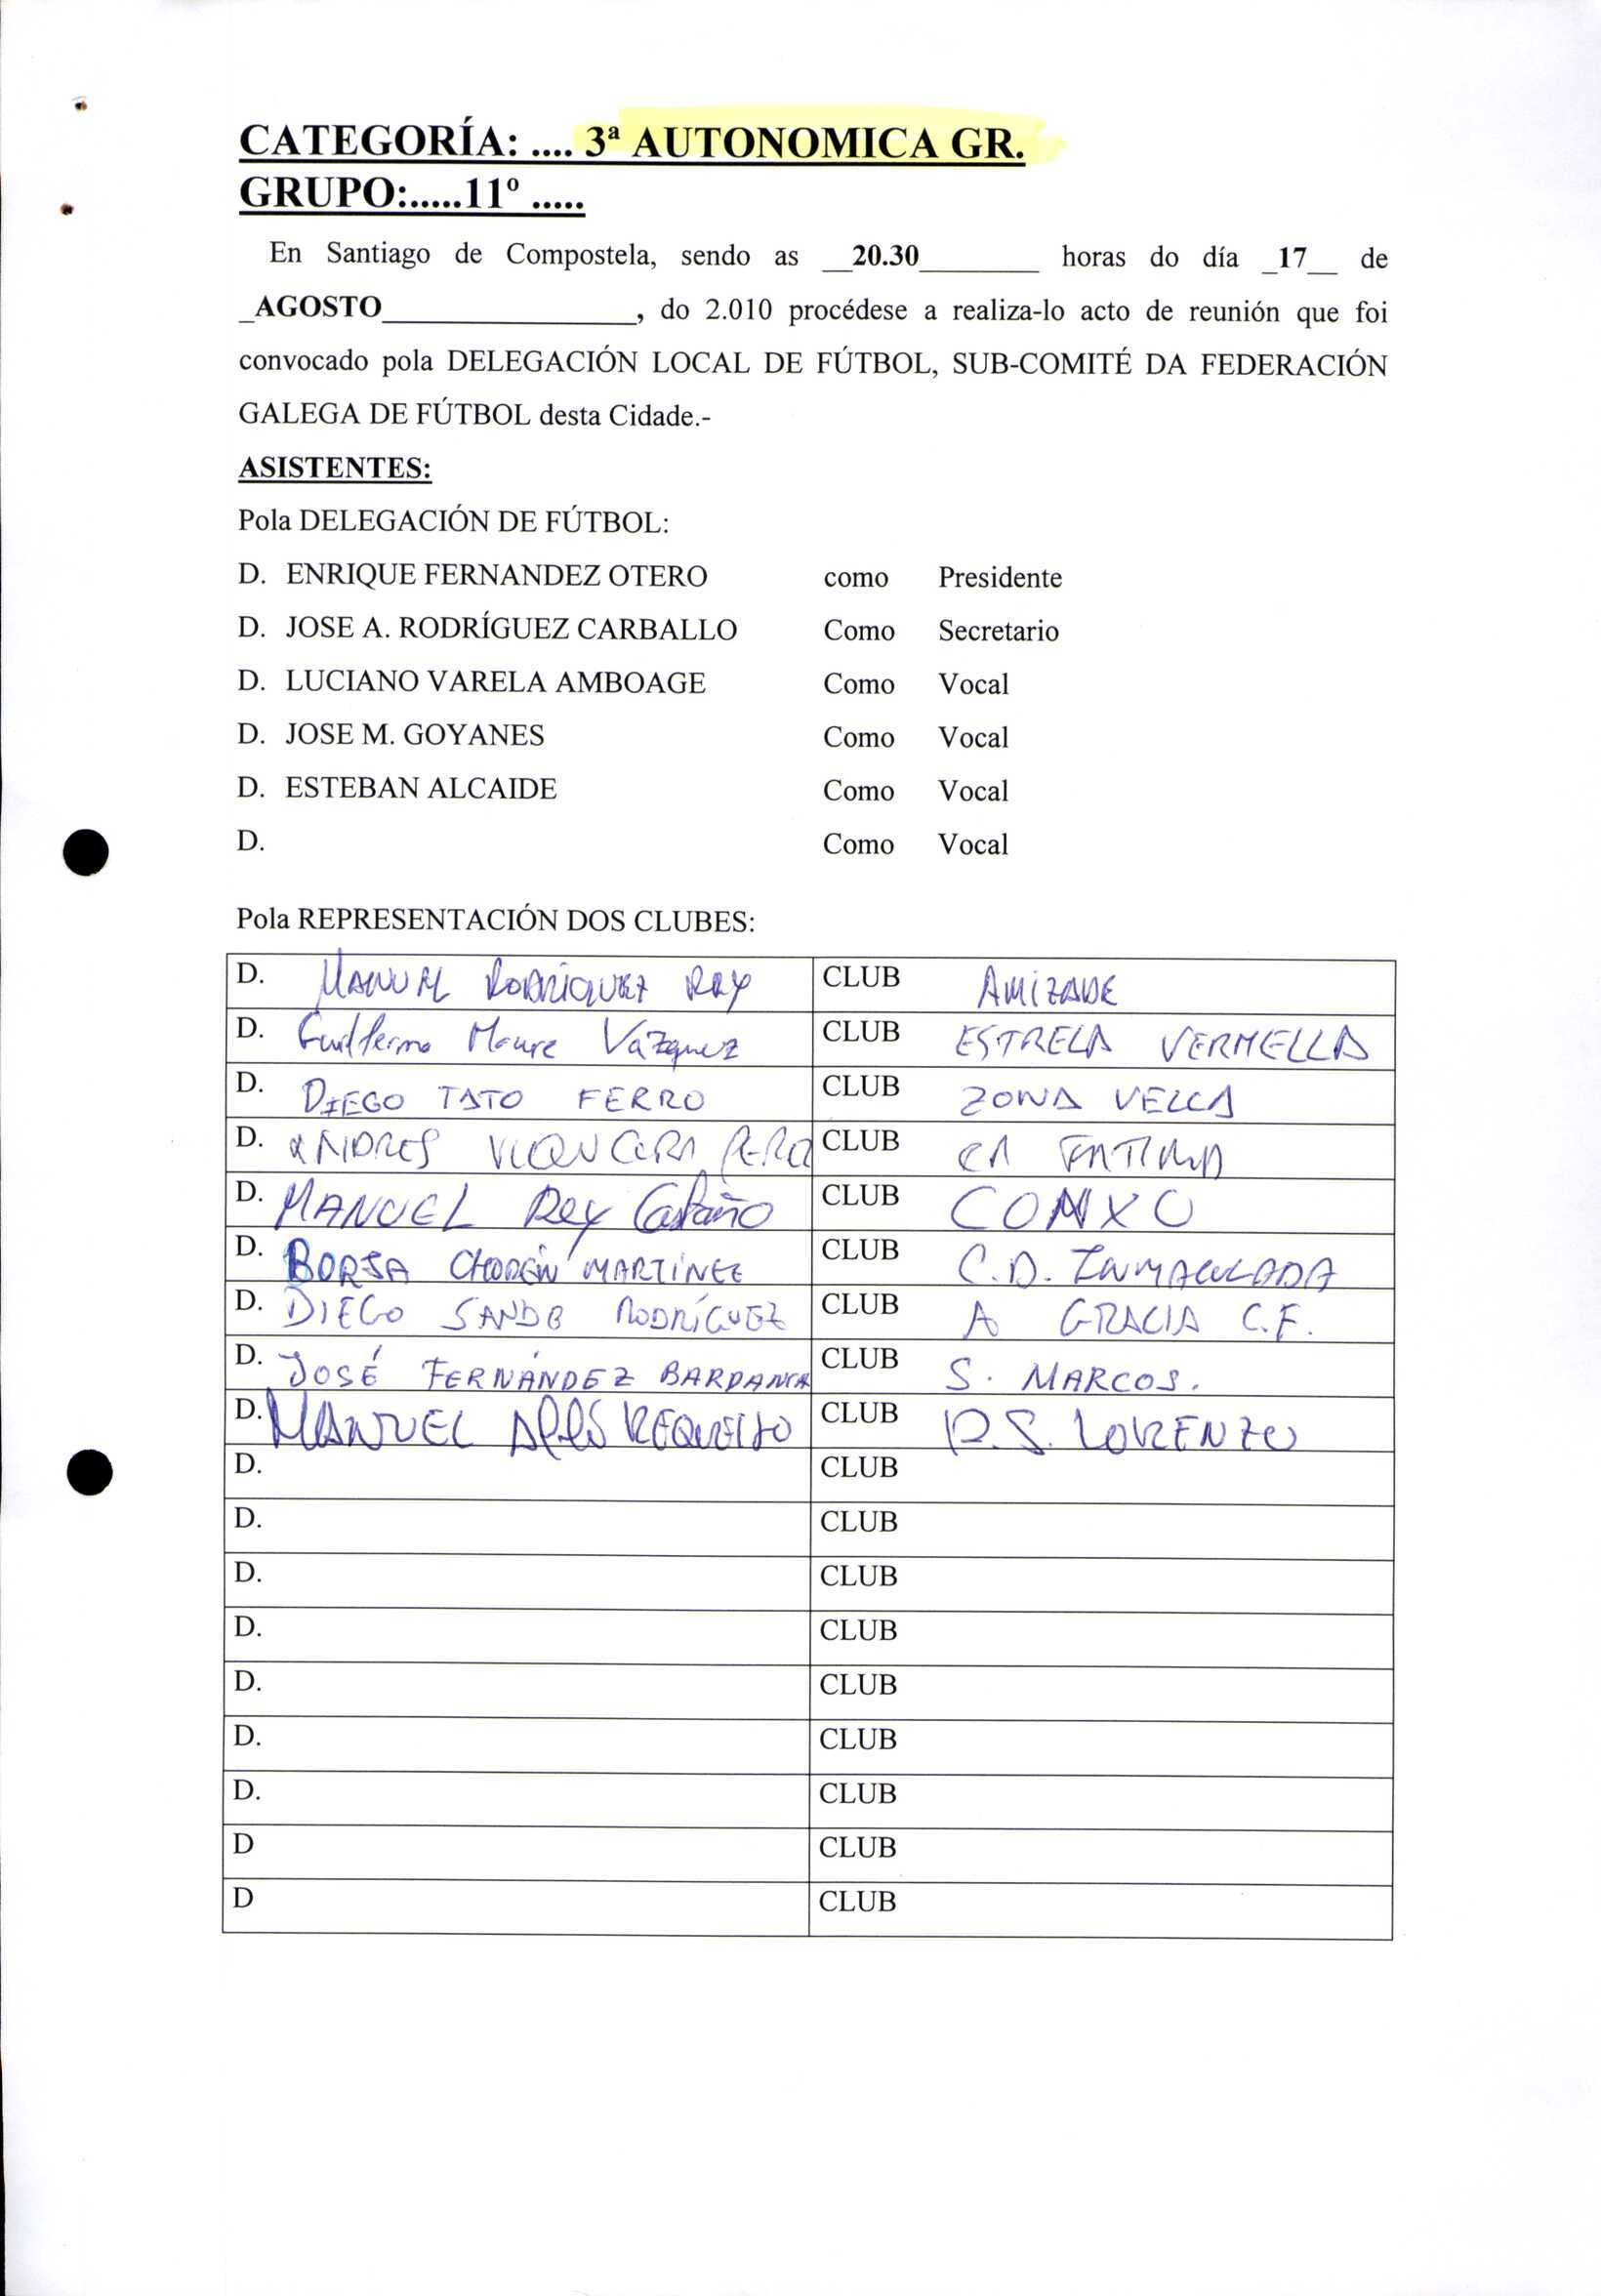 CATEGORÍA: .... 3ª AUTONOMICA GR.
GRUPO:.....11º .....
En Santiago de Compostela, sendo as __20.30________ horas do día _17__ de
_AGOSTO_________________, do 2.010 procédese a realiza-lo acto de reunión que foi
convocado pola DELEGACIÓN LOCAL DE FÚTBOL, SUB-COMITÉ DA FEDERACIÓN
GALEGA DE FÚTBOL desta Cidade.-
ASISTENTES:
Pola DELEGACIÓN DE FÚTBOL:
D. ENRIQUE FERNANDEZ OTERO como Presidente
D. JOSE A. RODRÍGUEZ CARBALLO Como Secretario
D. LUCIANO VARELA AMBOAGE Como Vocal
D. JOSE M. GOYANES Como Vocal
D. ESTEBAN ALCAIDE Como Vocal
D. Como Vocal
Pola REPRESENTACIÓN DOS CLUBES:
D. MANUEL RODRIGUEZ REY CLUB AMIZADE
D. Guillermo Moure Vázquez CLUB ESTRELA VERMELLA
D. DIEGO TATO FERRO CLUB ZONA VELLA
D. ANDRES CLUB LA FATIMA
D. MANUEL Rey Castaño CLUB CONXO
D. BORJA MARTÍNEZ CLUB C.D. INMACULADA
D. DIEGO SANDE RODRÍGUEZ CLUB A GRACIA C.F.
D. JOSÉ FERNÁNDEZ BARDANCA CLUB S. MARCOS.
D. MANUEL REQUEIJO CLUB R.S. LORENZO
D. CLUB
D. CLUB
D. CLUB
D. CLUB
D. CLUB
D. CLUB
D. CLUB
D CLUB
D CLUB